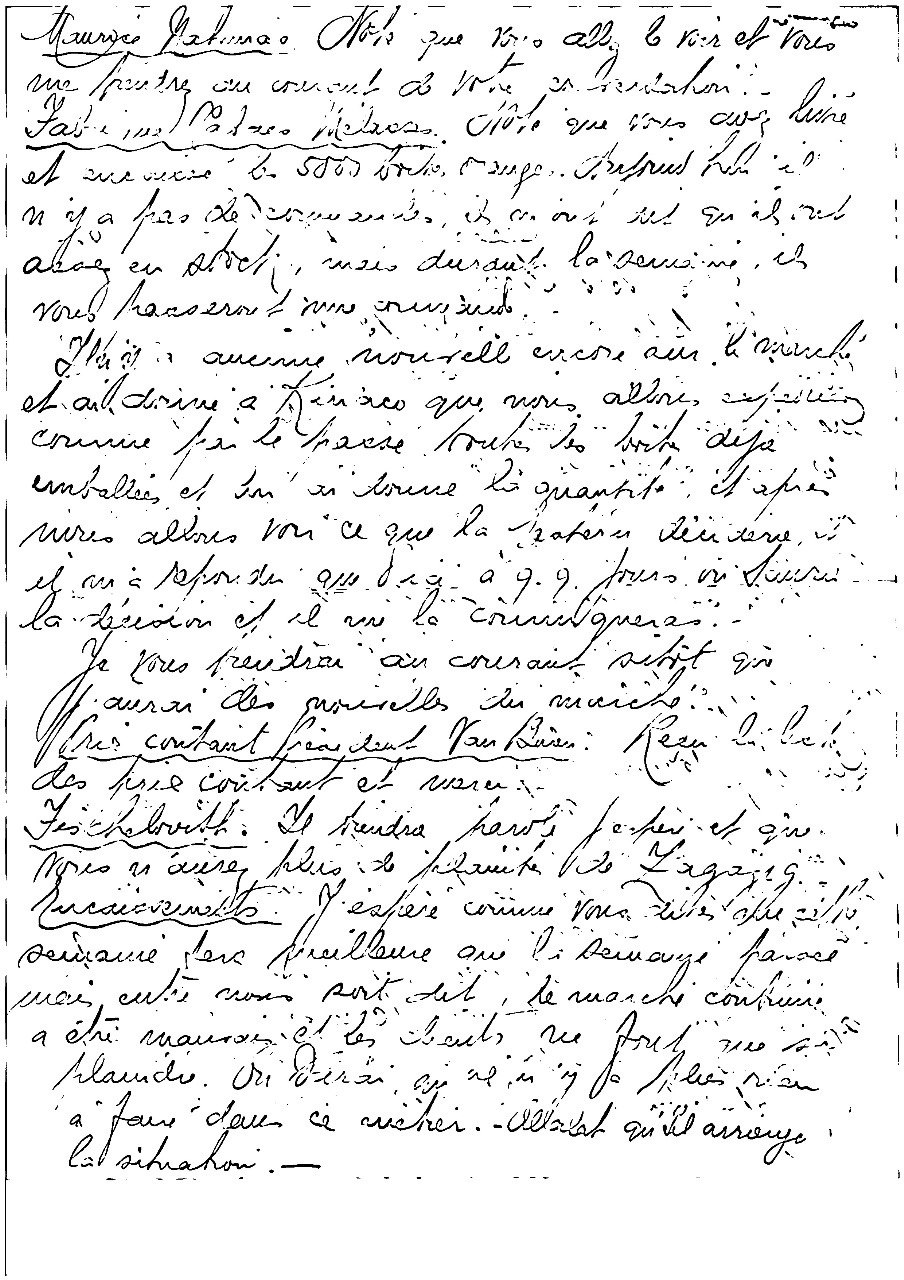 Maurice Nahmias. Noté que vous allez le voir et vous
me tiendrez au courant de votre
Noté que vous avez livré
et encaissé les 5000 boites rouges. Aujourd'hui il
n'y a pas de commandes, ils m'ont dit qu'ils ont
assez en stock, mais durant la semaine, ils
vous passeront une commande.
Il n'y a aucune nouvelle encore sur le marché
et ai donné à que nous allons
comme par le passé toutes les boites déjà
emballées et lui ai donné la quantité, et après
nous allons voir ce que la décidera, et
il m'a répondu que d'ici à q.q. jours on saura
la décision et il me la communiquera.-
Je vous tiendrai au courant sitôt que
j'aurai des nouvelles du marché.
Prix coutant Président Van Buren: Reçu la liste
des prix coutant et merci.-
Il tiendra parole j'espère et que
vous n'aurez plus de plainte de Zagazig
Encaissements. J'espère comme vous dites que cette
semaine sera meilleure que la semaine passée
mais, entre nous soit dit, le marché continue
a être mauvais et les clients ne font que se
plaindre. On dirai qu'il n'y a plus rien
à faire dans ce métier. - qu'il arrange
la situation. —